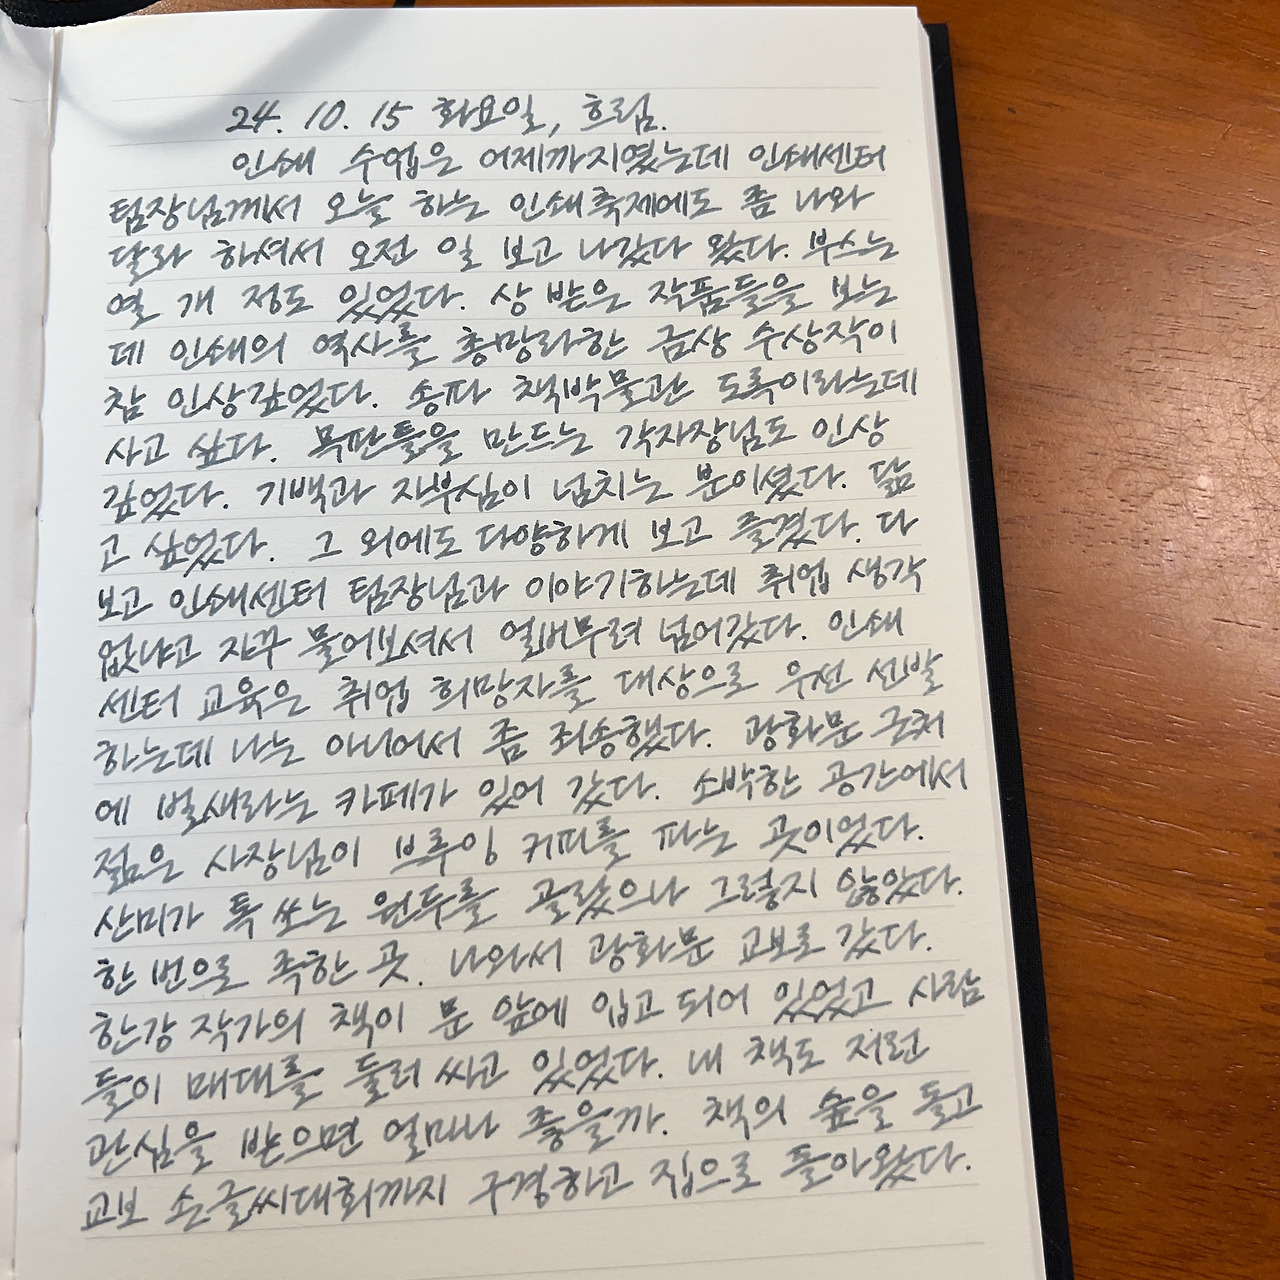 24. 10. 15 화요일, 흐림.
인쇄 수업은 어제까지였는데 인쇄센터
팀장님께서 오늘 하는 인쇄축제에도 좀 나와
달라 하셔서 오전 일 보고 나갔다 왔다. 부스는
열 개 정도 있었다. 상 받은 작품들을 보는
데 인쇄의 역사를 총망라한 금상 수상작이
참 인상깊었다. 송파 책박물관 도록이라는데
사고 싶다. 목판틀을 만드는 각자장님도 인상
깊었다. 기백과 자부심이 넘치는 분이셨다. 닮
고 싶었다. 그 외에도 다양하게 보고 즐겼다. 다
보고 인쇄센터 팀장님과 이야기하는데 취업 생각
없냐고 자꾸 물어보셔서 얼버무려 넘어갔다. 인쇄
센터 교육은 취업 희망자를 대상으로 우선 선발
하는데 나는 아니어서 좀 죄송했다. 광화문 근처
에 벌새라는 카페가 있어 갔다. 소박한 공간에서
젊은 사장님이 브루잉 커피를 파는 곳이었다.
산미가 톡 쏘는 원두를 골랐으나 그렇지 않았다.
한 번으로 족한 곳. 나와서 광화문 교보로 갔다.
한강 작가의 책이 문 앞에 입고 되어 있었고 사람
들이 매대를 둘러 싸고 있었다. 내 책도 저런
관심을 받으면 얼마나 좋을까. 책의 숲을 돌고
교보 손글씨대회까지 구경하고 집으로 돌아왔다.